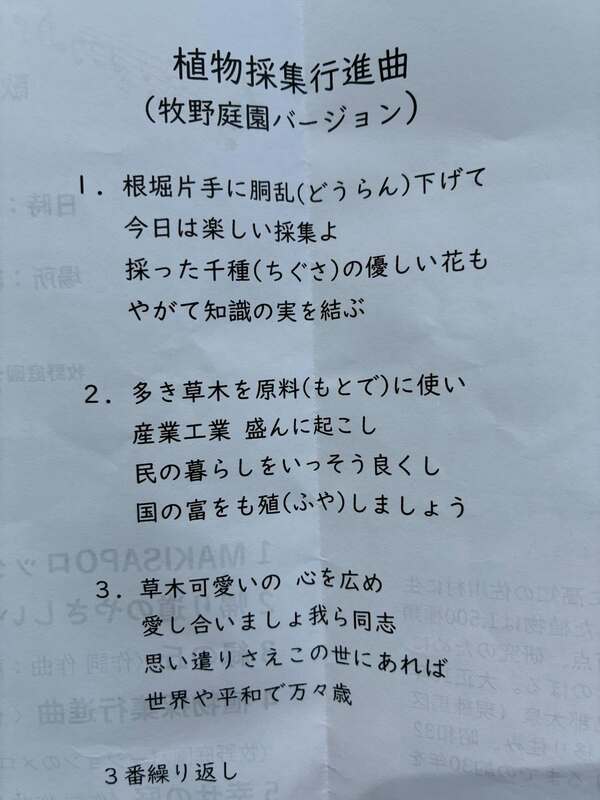 植物採集行進曲
(牧野庭園バージョン)
1. 根堀片手に胴乱(どうらん)下げて
今日は楽しい採集よ
採った千種(ちぐさ)の優しい花も
やがて知識の実を結ぶ
2. 多き草木を原料(もとで)に使い
産業工業 盛んに起こし
民の暮らしをいっそう良くし
国の富をも殖(ふや)しましょう
3. 草木可愛いの 心を広め
愛し合いましょ我ら同志
思い遣りさえこの世にあれば
世界や平和で万々歳
3番繰り返し